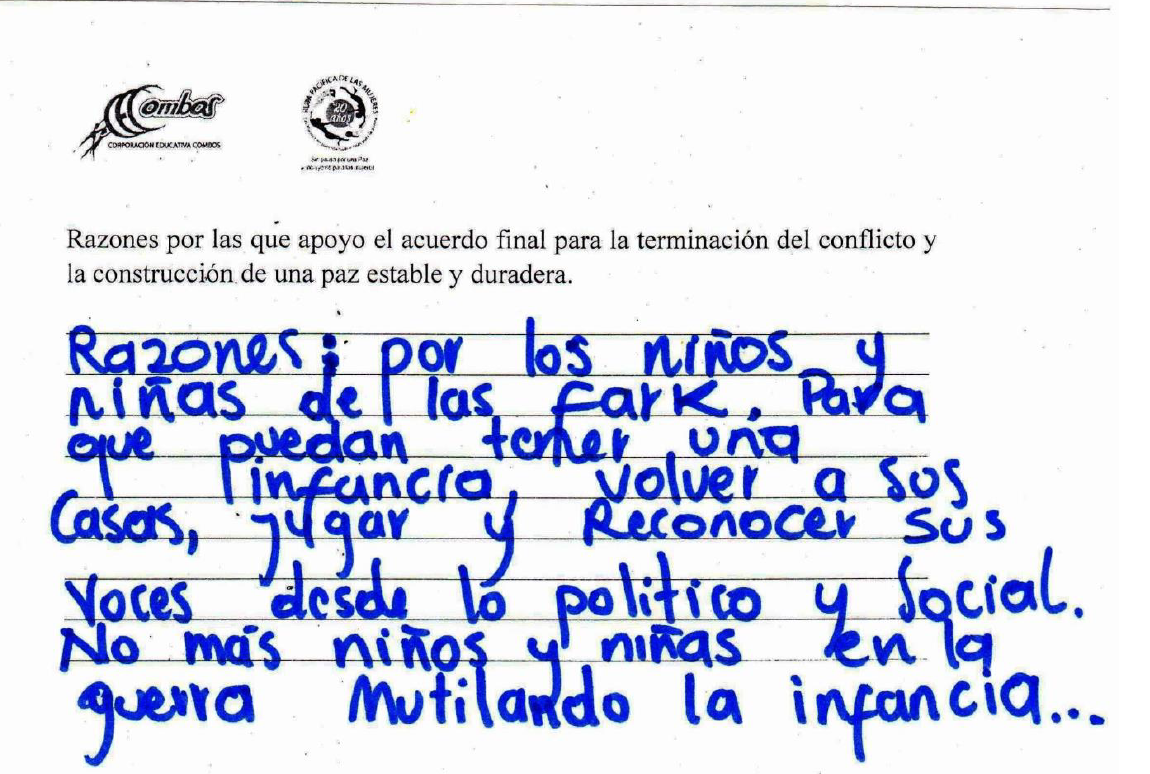 Combos
CORPORACIÓN EDUCATIVA COMBOS
RUTA PACÍFICA DE LAS MUJERES
20
años
Razones por las que apoyo el acuerdo final para la terminación del conflicto y
la construcción de una paz estable y duradera.
Razones: por los niños y
niñas de las fark. Para
que puedan tener una
infancia, volver a sus
Casas, jugar y Reconocer sus
Voces desde lo politico y Social.
No más niños y niñas en la
guerra Mutilando la infancia...